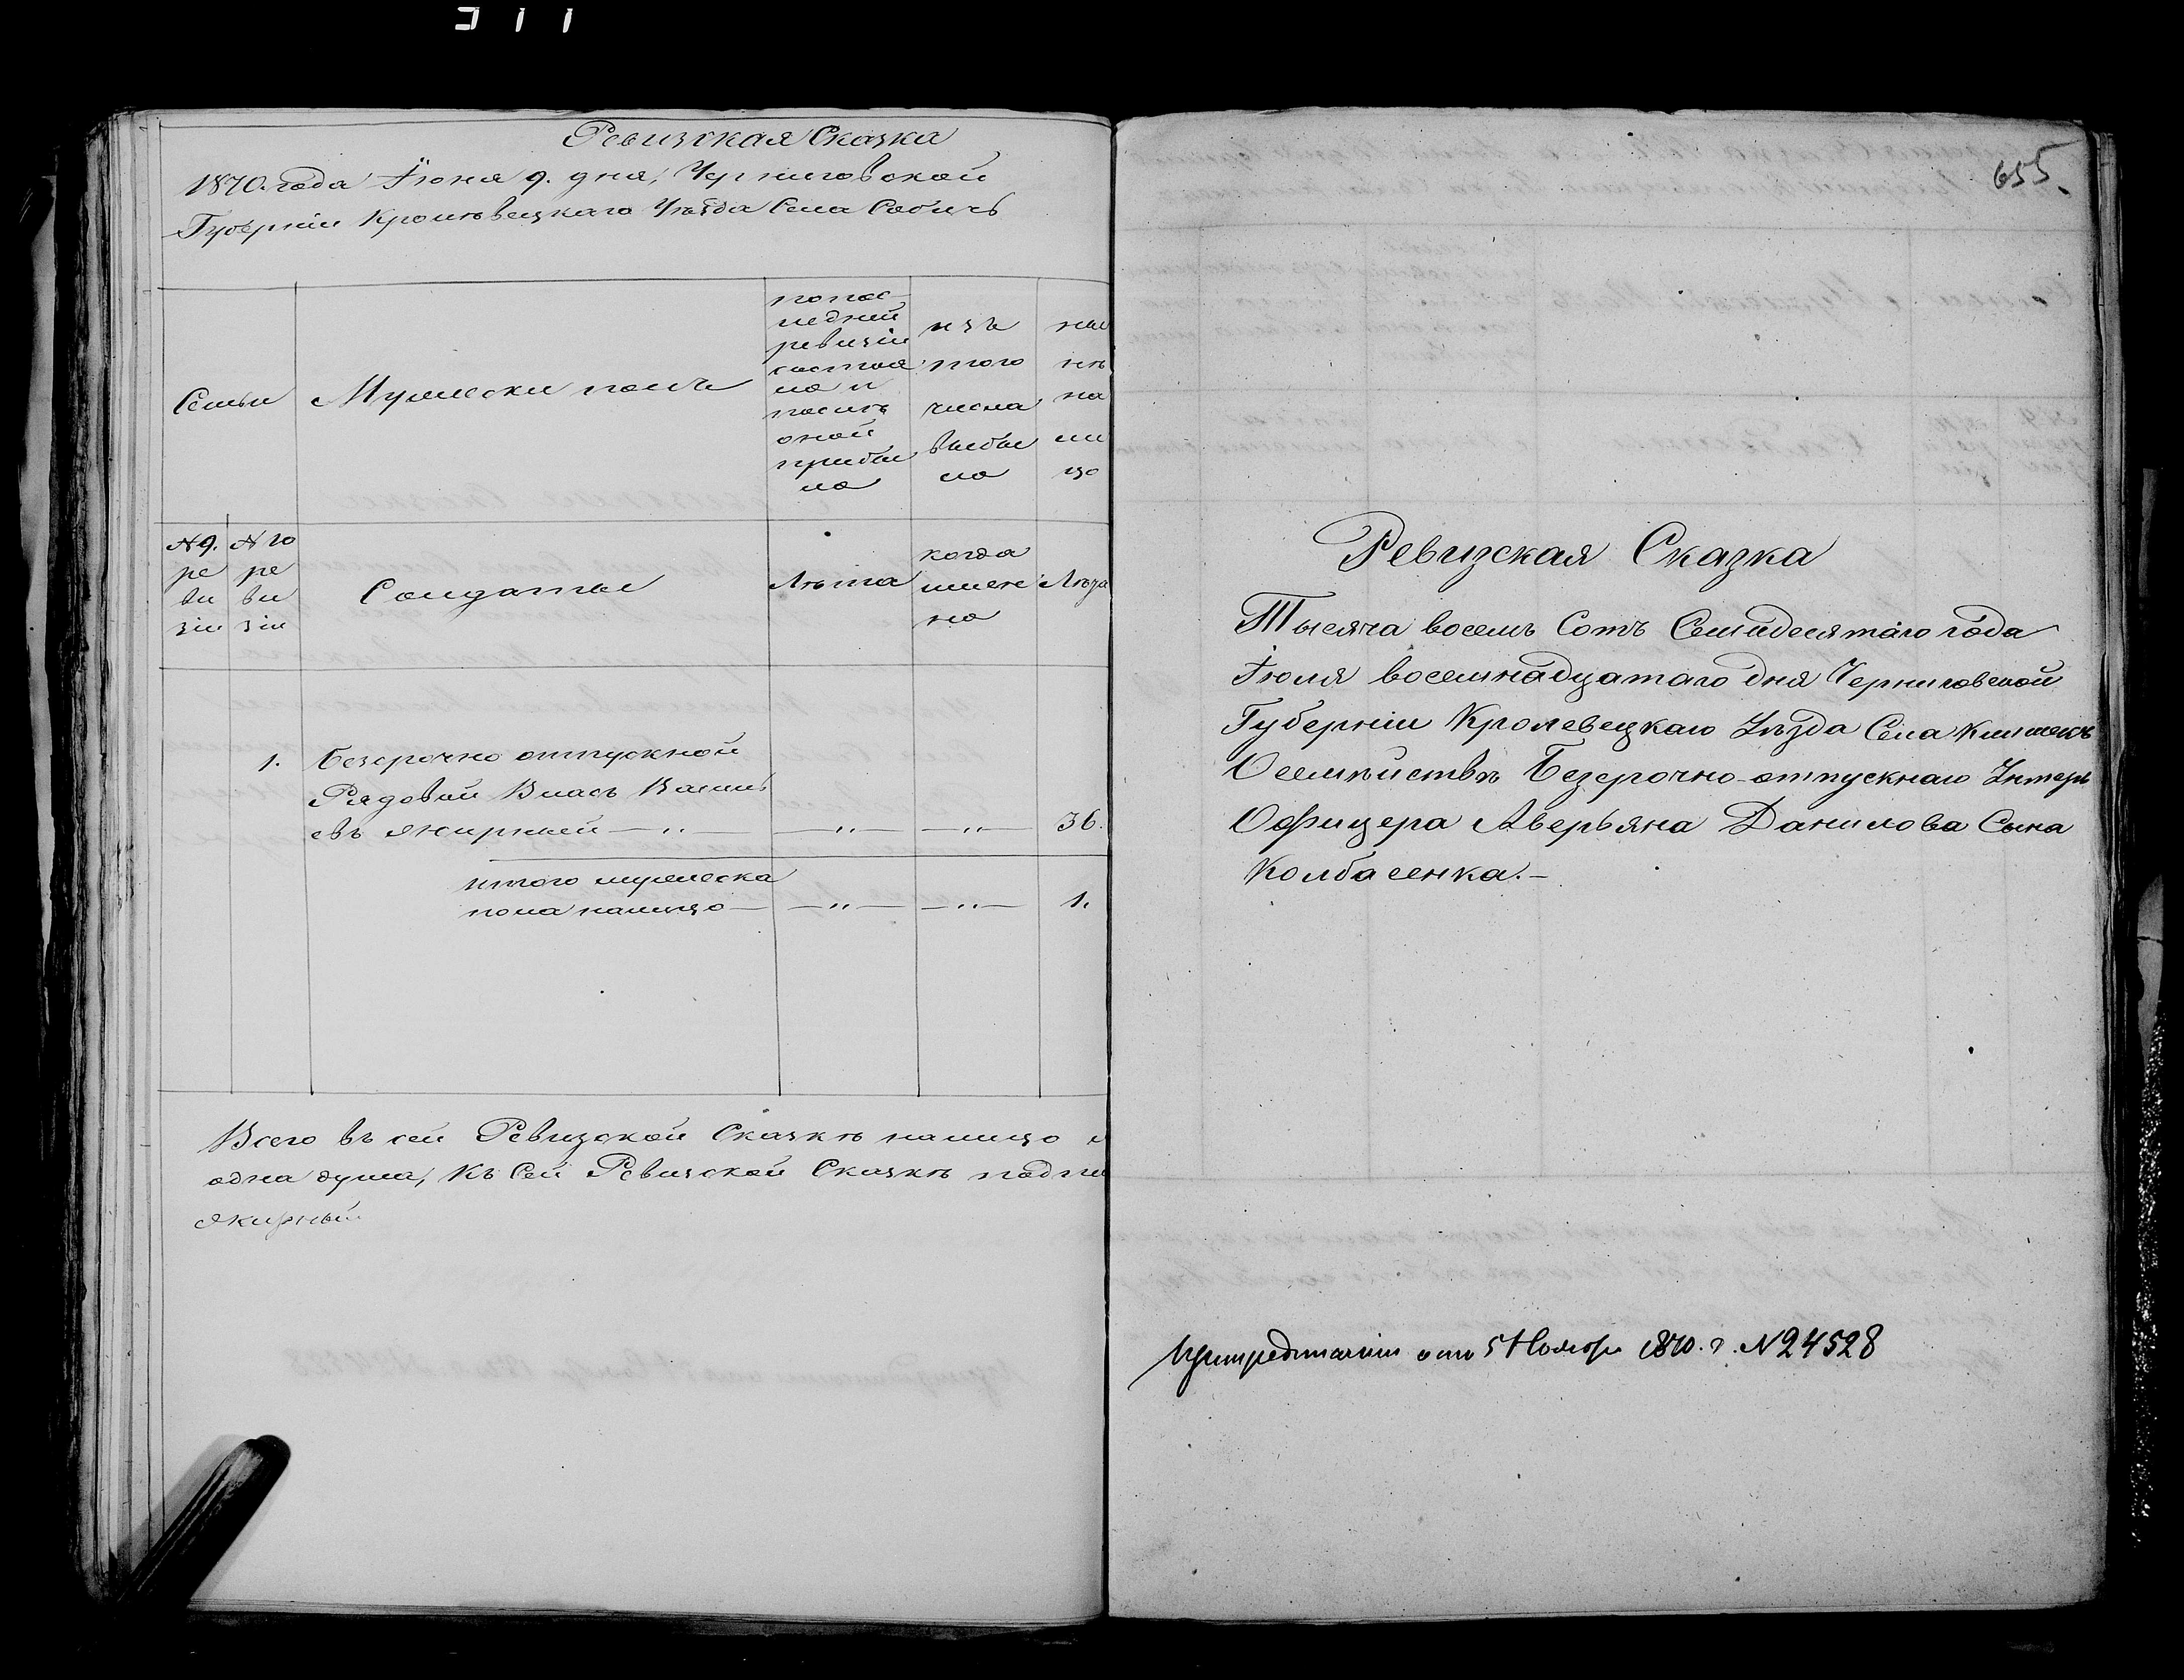 Ревизская Сказка
1870. года Іюня 9. дня, Черниговской
Губерніи Кролевецкаго Уѣзда Села Собичъ
Семьи
Мужески полъ
попос-
ледней
ревизіи
состоя
ло и
послѣ
оной
прибы
ло
изъ
того
числа
выбы
ло
ны
нѣ
на
ли
цо
№ 9.
ре
ви
зіи
№ 10
ре
ви
зіи
Солдаты
Лѣта
когда
имен
но
Лѣта
1. безсрочно отпускной
Рядовой Власъ Василь
евъ Якирный —„— —„— —„— 36.
итого мужеска
пола налицо — —„— —„— 1.
Всего въ сей Ревизской Сказкѣ налицо
одна душа, Къ Сей Ревизской Сказкѣ подпи
Якирный
655.
Ревизская Сказка
Тысяча восемь Сотъ Семидесятаго года
Іюля восемнадцатаго дня Черниговской
Губерніи Кролевецкаго Уѣзда Села
О семѣйствѣ Безсрочно-отпускнаго Унтеръ
Офицера Аверьяна Данилова Сына
Колбасенка.—
от 5 Ноябр 1870. г. № 24528